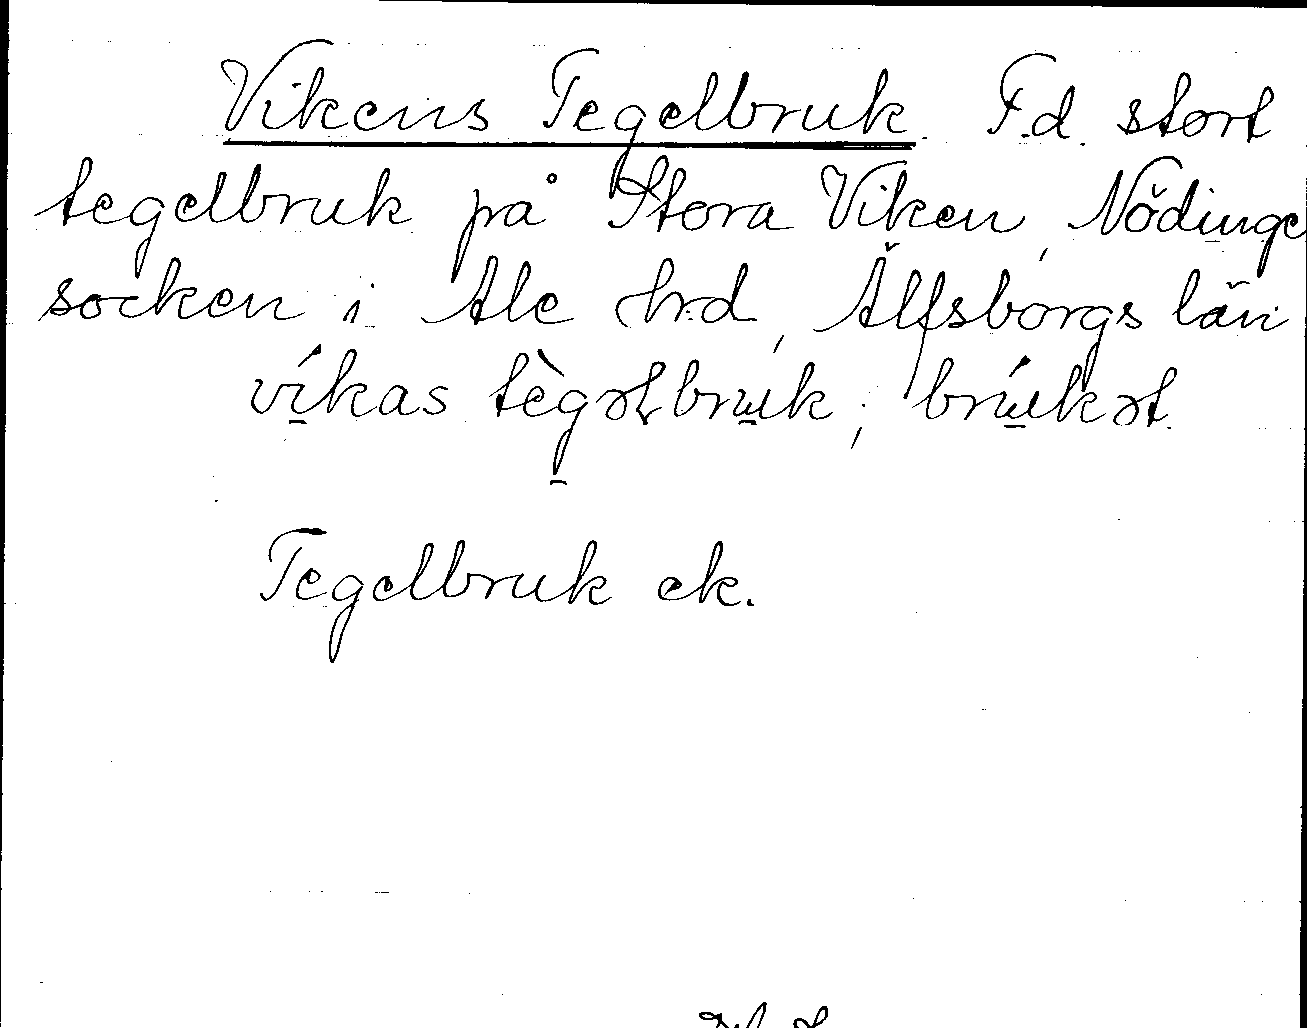 Vikens Tegelbruk. F.d. stort
tegelbruk på Stora Viken, Nödinge
socken i Ale hrd, Älfsborgs län
víkas tègəlbruk; brúkət.
Tegelbruk ek.